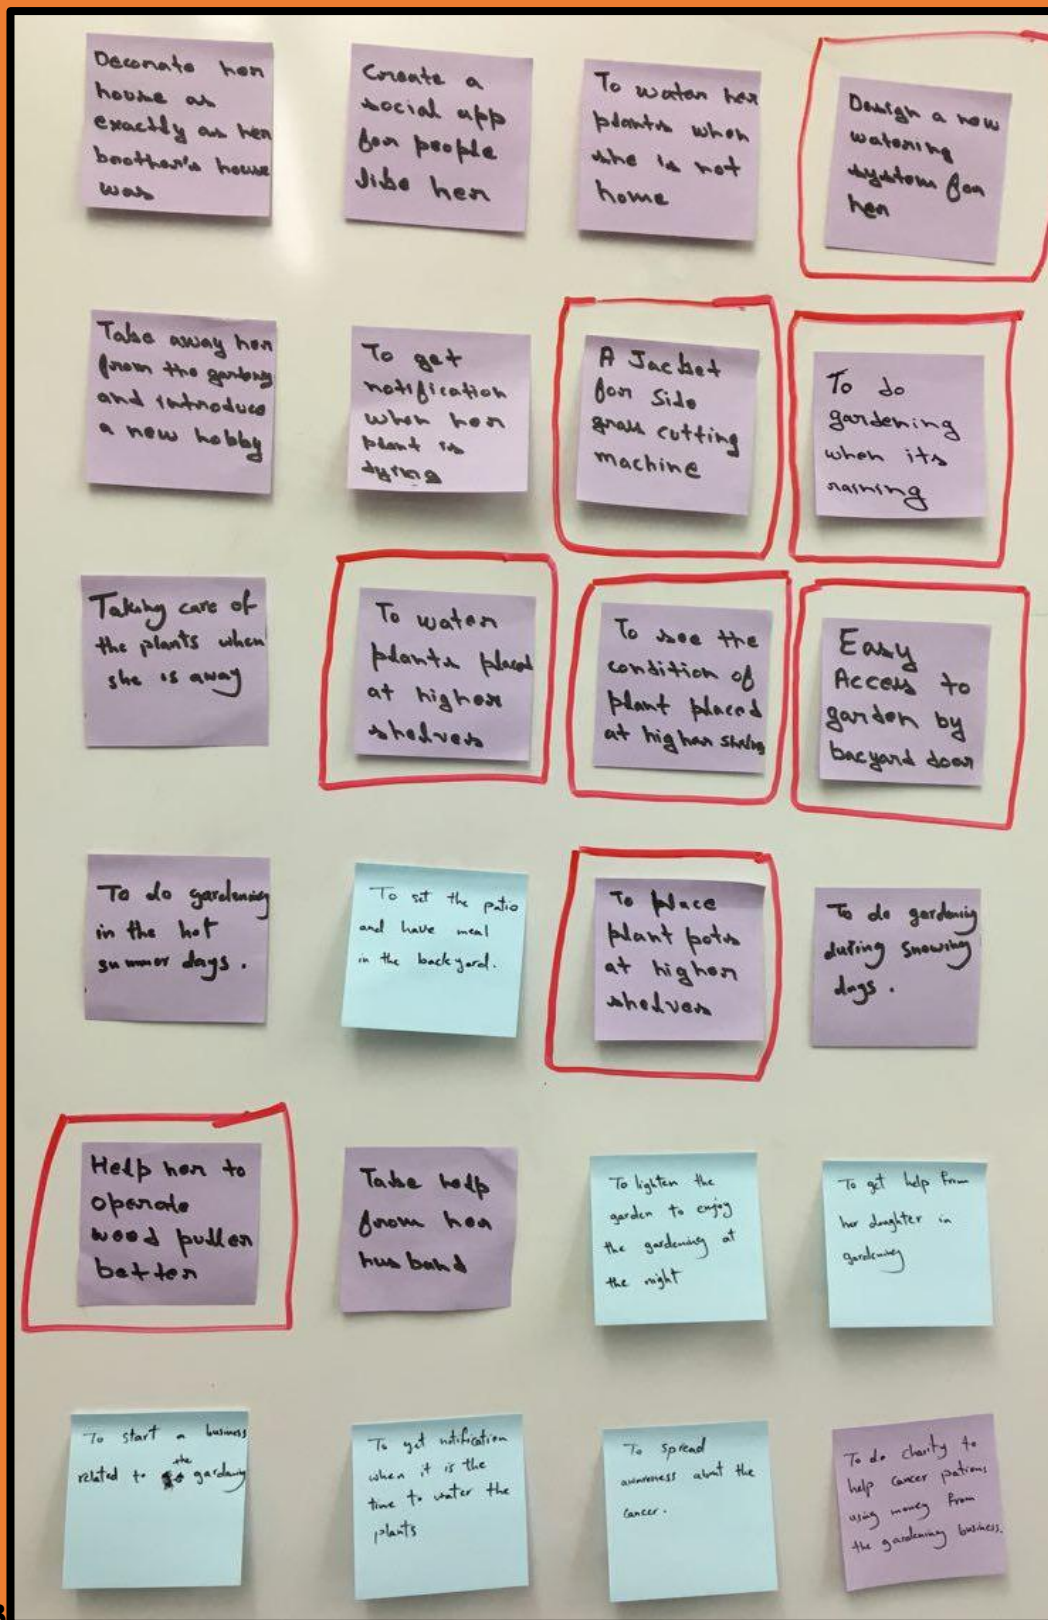 Decorate her
house as
exactly as her
brother's house
was
Create a
social app
for people
like her
To water her
plants when
she is not
home
Design a new
watering
system for
her
Take away her
from the garden
and introduce
a new hobby
To get
notification
when her
plant is
dying
A Jacket
for side
grass cutting
machine
To do
gardening
when its
raining
Taking care of
the plants when
she is away
To water
plants placed
at higher
shelves
To see the
condition of
plant placed
at higher shelves
Easy
Access to
garden by
bacyard door
To do gardening
in the hot
summer days.
To set the patio
and have meal
in the backyard.
To place
plant pots
at higher
shelves
To do gardening
during snowing
days.
Help her to
operate
weed puller
better
Take help
from her
husband
To lighten the
garden to enjoy
the gardening at
the night
To get help from
her daughter in
gardening
To start a business
related to the gardening
To get notification
when it is the
time to water the
plants
To spread
awareness about the
cancer.
To do charity to
help cancer patients
using money from
the gardening business.